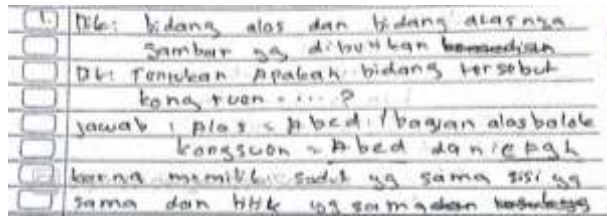 1. Dik: bidang alas dan bidang atasnya
gambar yg dibuatkan
Dit: Tentukan Apakah bidang tersebut
kongruen ....?
Jawab: Alas = Abcd / bagian alas balok
kongruen = Abcd dan
karna memiliki sudut yg sama sisi yg
sama dan yg sama